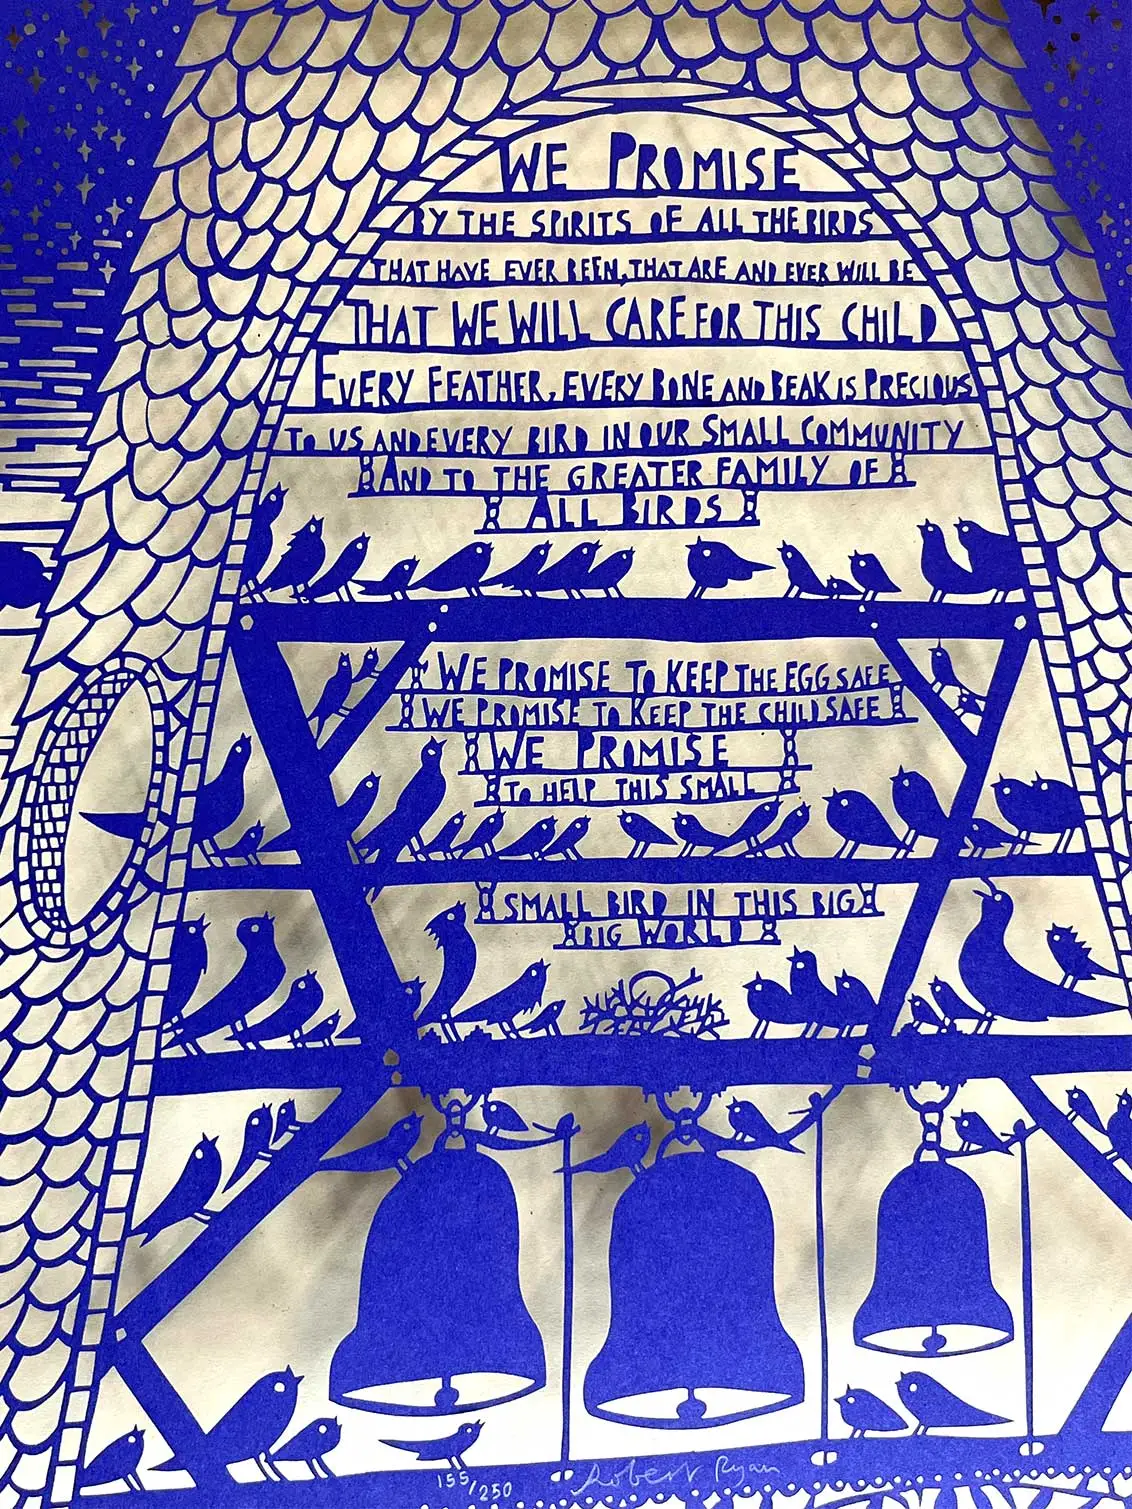 WE PROMISE
BY THE SPIRITS OF ALL THE BIRDS
THAT HAVE EVER BEEN, THAT ARE AND EVER WILL BE
THAT WE WILL CARE FOR THIS CHILD
EVERY FEATHER, EVERY BONE AND BEAK IS PRECIOUS
TO US AND EVERY BIRD IN OUR SMALL COMMUNITY
AND TO THE GREATER FAMILY OF
ALL BIRDS
WE PROMISE TO KEEP THE EGG SAFE
WE PROMISE TO KEEP THE CHILD SAFE
WE PROMISE
TO HELP THIS SMALL
SMALL BIRD IN THIS BIG
BIG WORLD
155/250 Robert Ryan